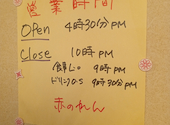 営業時間
Open 4時30分PM
Close 10時PM
食事L.o 9時PM
ドリンクO.S 9時30分PM
赤のれん